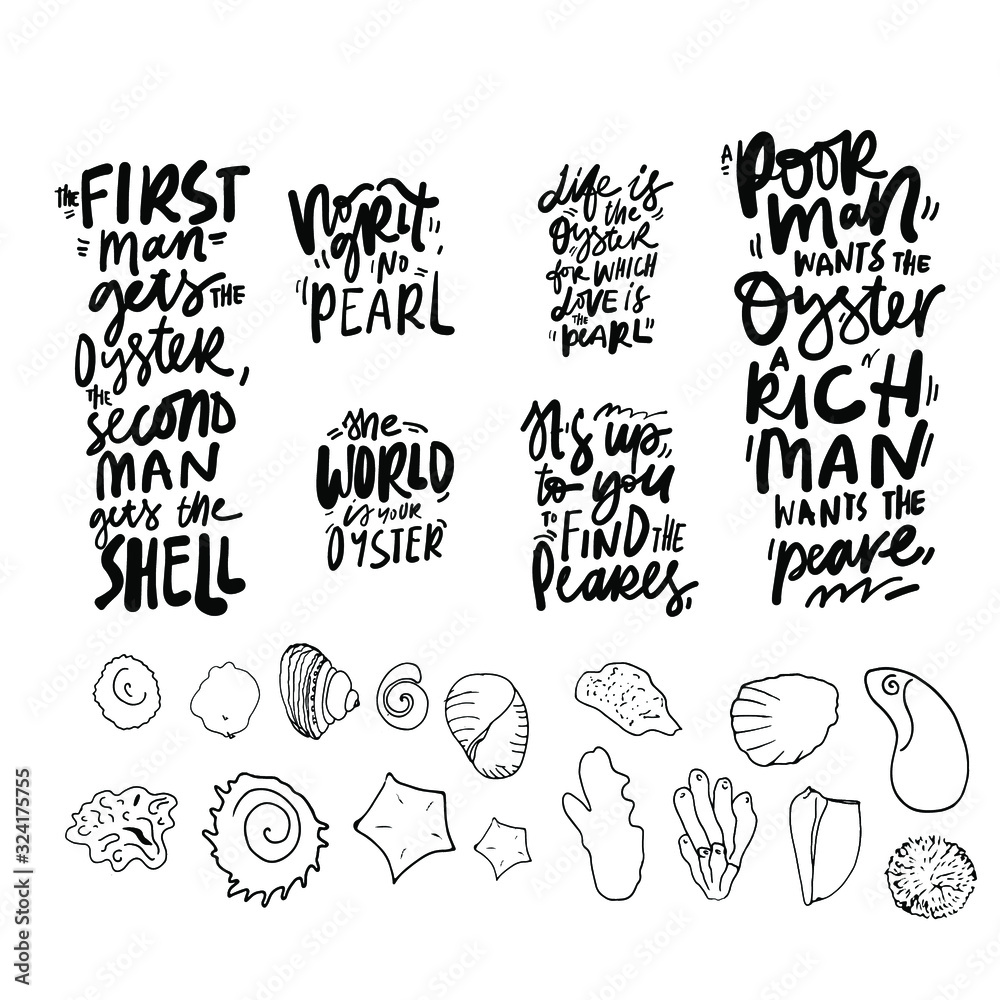 THE FIRST
man
gets THE
Oyster,
THE second
MAN
gets the
SHELL
No
GRIT,
NO
PEARL
Life is
the
Oyster
for WHICH
LOVE is
THE
pearl
the
WORLD
is YOUR
OYSTER
It's up
to you
TO FIND THE
Peares,
A POOR
Man
WANTS THE
Oyster
A
RICH
MAN
WANTS THE
peare,
Adobe Stock | #324175755